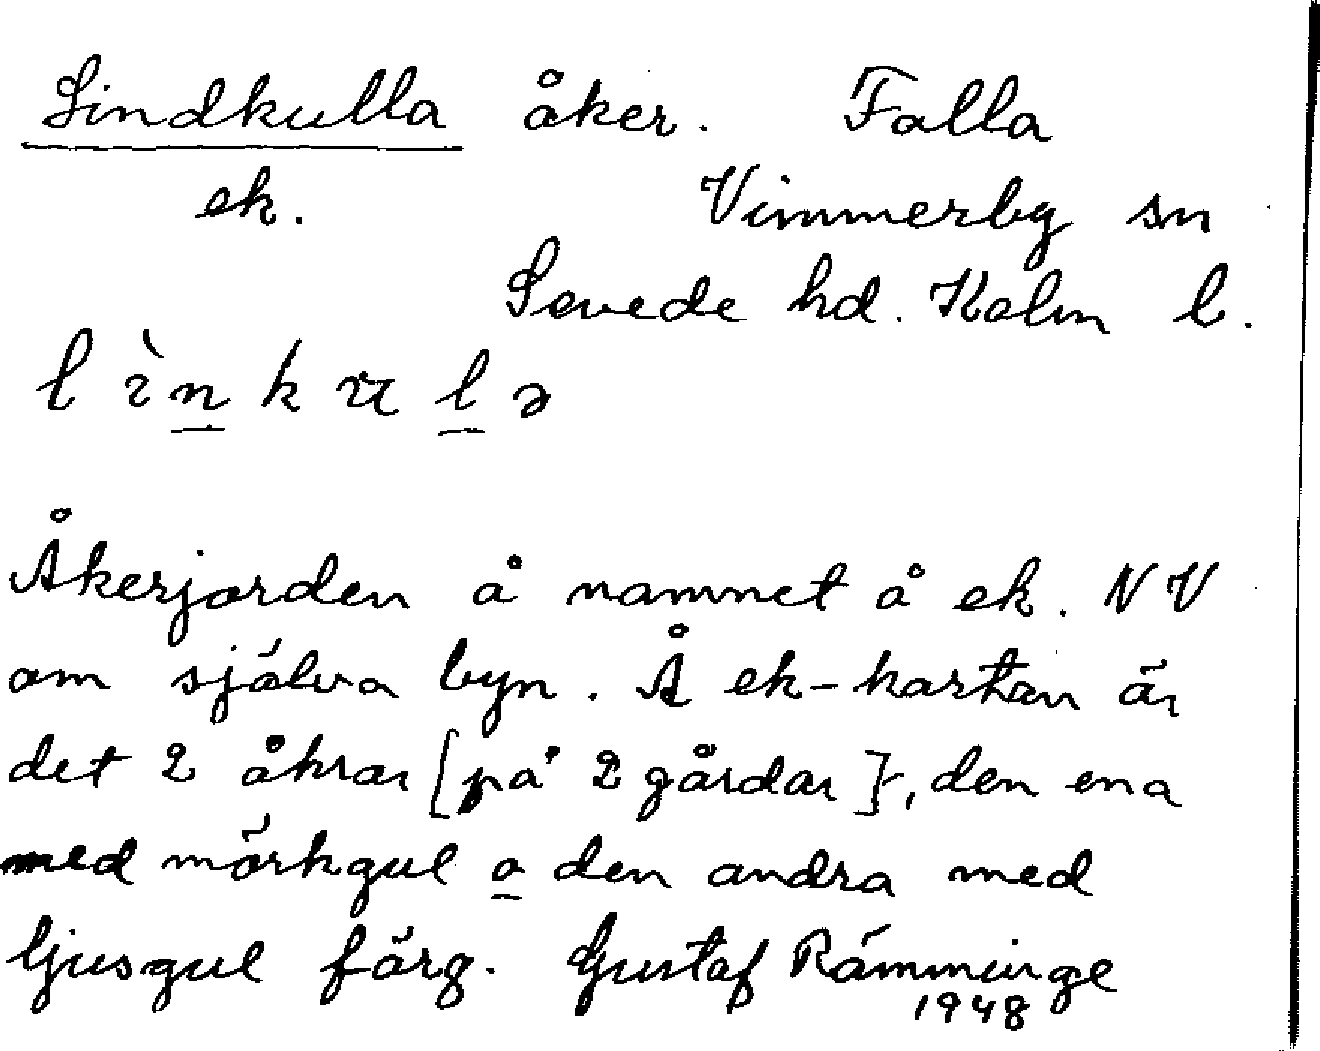 Lindkulla åker. Falla
ek. Vimmerby sn
Sevede hd. Kalm l.
l ì n k u l ə
Åkerjorden å namnet å ek. NV
om själva byn. Å ek-kartan är
det 2 åkrar [på 2 gårdar], den ena
med mörkgul o den andra med
ljusgul färg. Gustaf Rämminge
1948